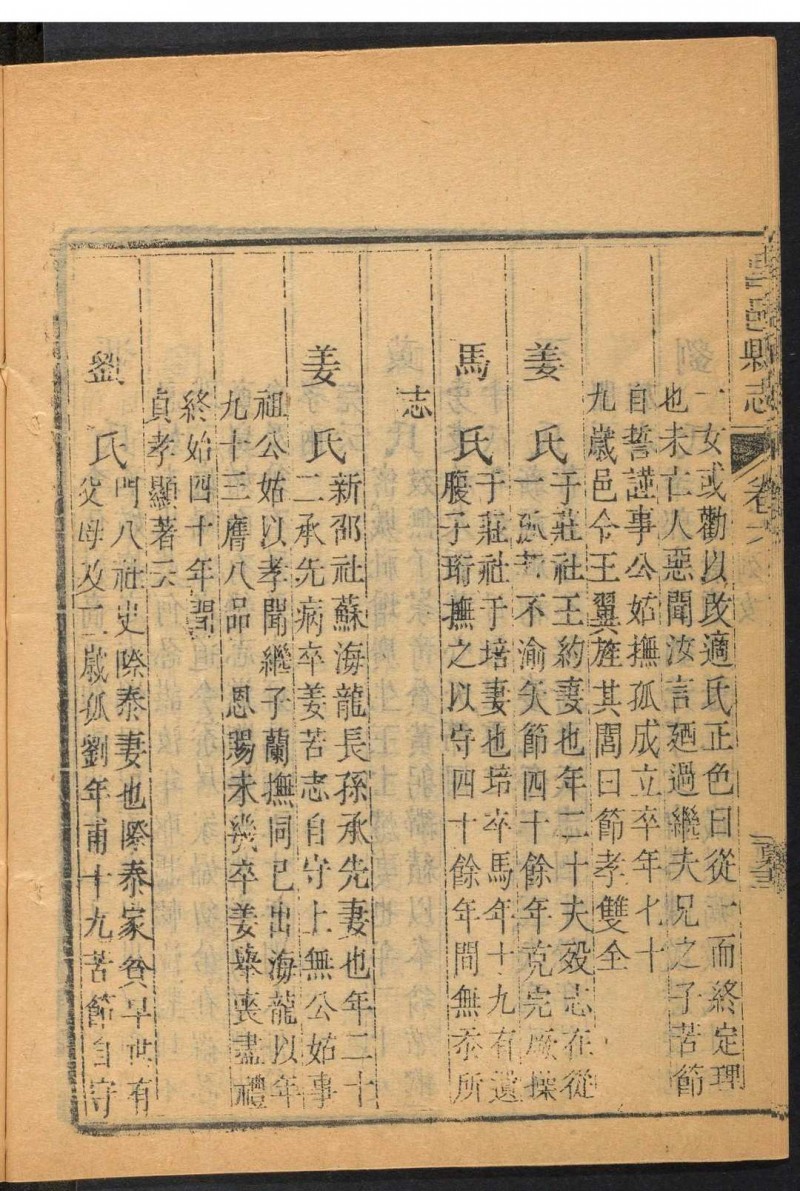 邑縣志
卷六
一女或勸以改適氏正色曰從一而終定理
也未亡人惡聞汝言廼過繼夫兄之子苦節
自誓謹事公姑撫孤成立卒年七十
九歲邑令王翼旌其閭曰節孝雙全
姜氏于莊社王約妻也年二十夫殁志在從
一孤苦不渝矢節四十餘年克完厥操
馬氏于莊社于培妻也培卒馬年十九有遺
腹子珩撫之以守四十餘年間無忝所
志
姜氏新郚社蘇海龍長孫承先妻也年二十
二承先病卒姜苦志自守上無公姑事
祖公姑以孝聞繼子蘭撫同已出海龍以年
九十三膺八品恩賜未幾卒姜舉喪盡禮
終始四十年
貞孝顯著云
劉氏門八社史際泰妻也際泰家貧早世有
父母及二歲孤劉年甫十九苦節自守